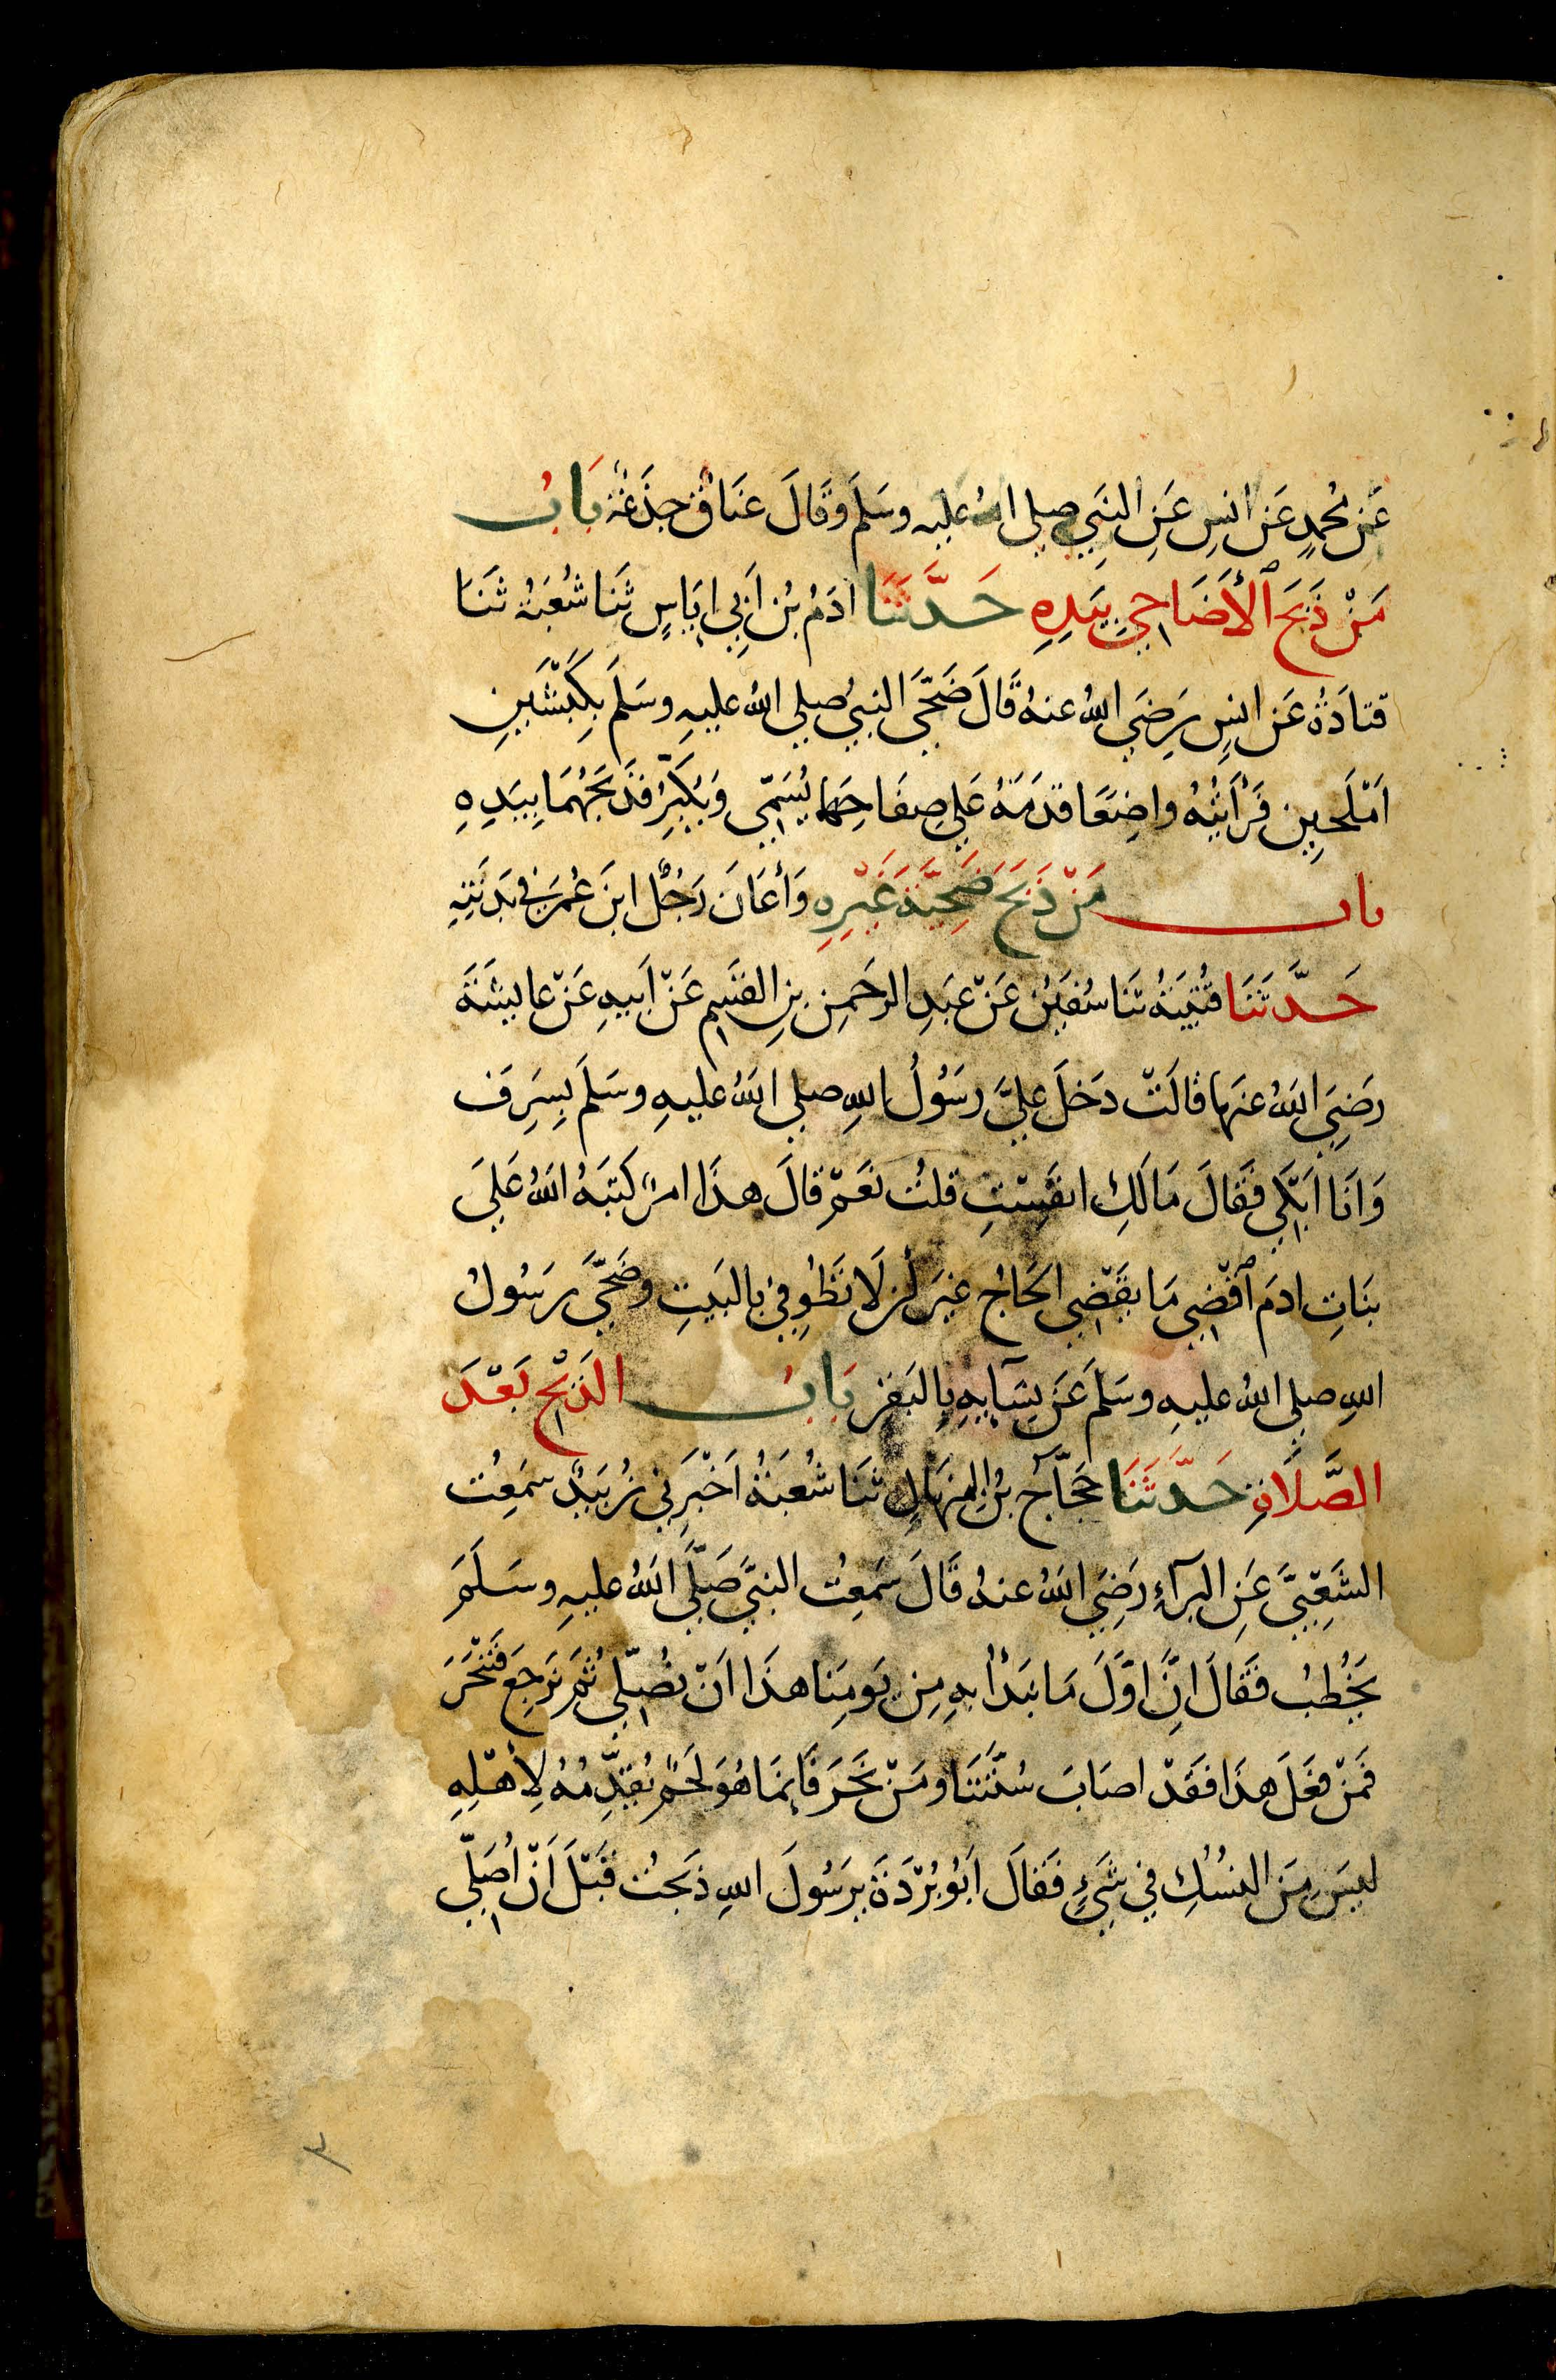 عَنْ مُحمدٍ عَن انسٍ عَنِ النبَيِ صلي اللهُ عليه وسَلمَ وقَالَ عَنَاقٌ جذَعَةٌ بَابُ
مَنْ ذَبَحَ الأَضَاحِيَ بيَدِهِ حَدَّثَنَا ادَمُ بْن اَبِي ايَاسٍ ثَنا شُعبَةُ ثَنَا
قتادَةُ عَن انسٍ رَضيَ اللهُ عنهُ قَالَ ضَحَّي النبيُ صلي اللهُ عليهِ وسَلمَ بكَبْشَينِ
اَمْلَحينِ فَرَأيتُهُ واضِعًا قدَمَهُ عَلي صِفَاحِهَما يُسَمِّي وَيُكَبِّرُ فذَبَحَهُمَا بيَدِهِ
باب مَنْ ذَبَحَ ضَحِيَّةَ غَيْرِهِ وَأعَانَ رَجُلٌ ابنَ عُمَرَ في بَدَنَتِهِ
حَدَّثَنَا قُتَيبَةُ ثَنَا سُفيَنُ عَنْ عبَدِ الرحَمنِ بنِ القسَمِ عَنْ اَبيهِ عَنْ عايشَةَ
رضَيَ اللهُ عنهَا قالَتْ دخَلَ عليَّ رسَوُلُ اللهِ صلي اللهُ عليهِ وسَلمَ بِسَرِفَ
وَانَا ابَكي فقَالَ مَالَكِ انفَسْتِ قلتُ نعَمْ قالَ هذَا امرٌ كتبَهُ اللهُ عَليَ
بنَاتِ ادمَ اقْضِي مَا يقَضِي الحَاجُ غيَر أن لَا تَطُوفِي بالبَيتِ وضَحَّيَ رسَولُ
اللهِ صلي اللهُ عليهِ وسَلمَ عَن نِسَآيهِ بالبَقرِ بَابُ الذَبْحِ بَعْدَ
الصَّلَاةِ حَدَّثَنَا حجَّاجُ بْن المِنهَالِ ثنَا شُعبَةُ اَخْبرَني زُبَيدٌ سمَعِتُ
الشَعِبْيَّ عَنِ البرآءِ رَضِيَ اللهُ عنهُ قَالَ سَمَعِتُ النبَّيَ صَلَّي اللهُ عليهِ وسَلَمَ
يَخُطبُ فقَالَ انَّ اوَّلَ مَا نبَدَأ بهِ مِن يَومِنا هذَا اَنْ نُصَلِّي ثُمَ نَرجِعَ فَنَنْحَرَ
فَمَنْ فعَلَ هذَا فقَدْ اصَابَ سُنَّتَنَا ومَنْ نَحَرَ فَاِنمَا هُوَ لَحَمٌ يُقَدِّمُهُ لِأهْلِهِ
ليسَ مِنَ النسُكِ في شَيءٍ فقَالَ اَبُو بُرْدَةَ يرَسُولَ اللهِ ذبَحتُ قَبْلَ اَنْ اُصَلِّي